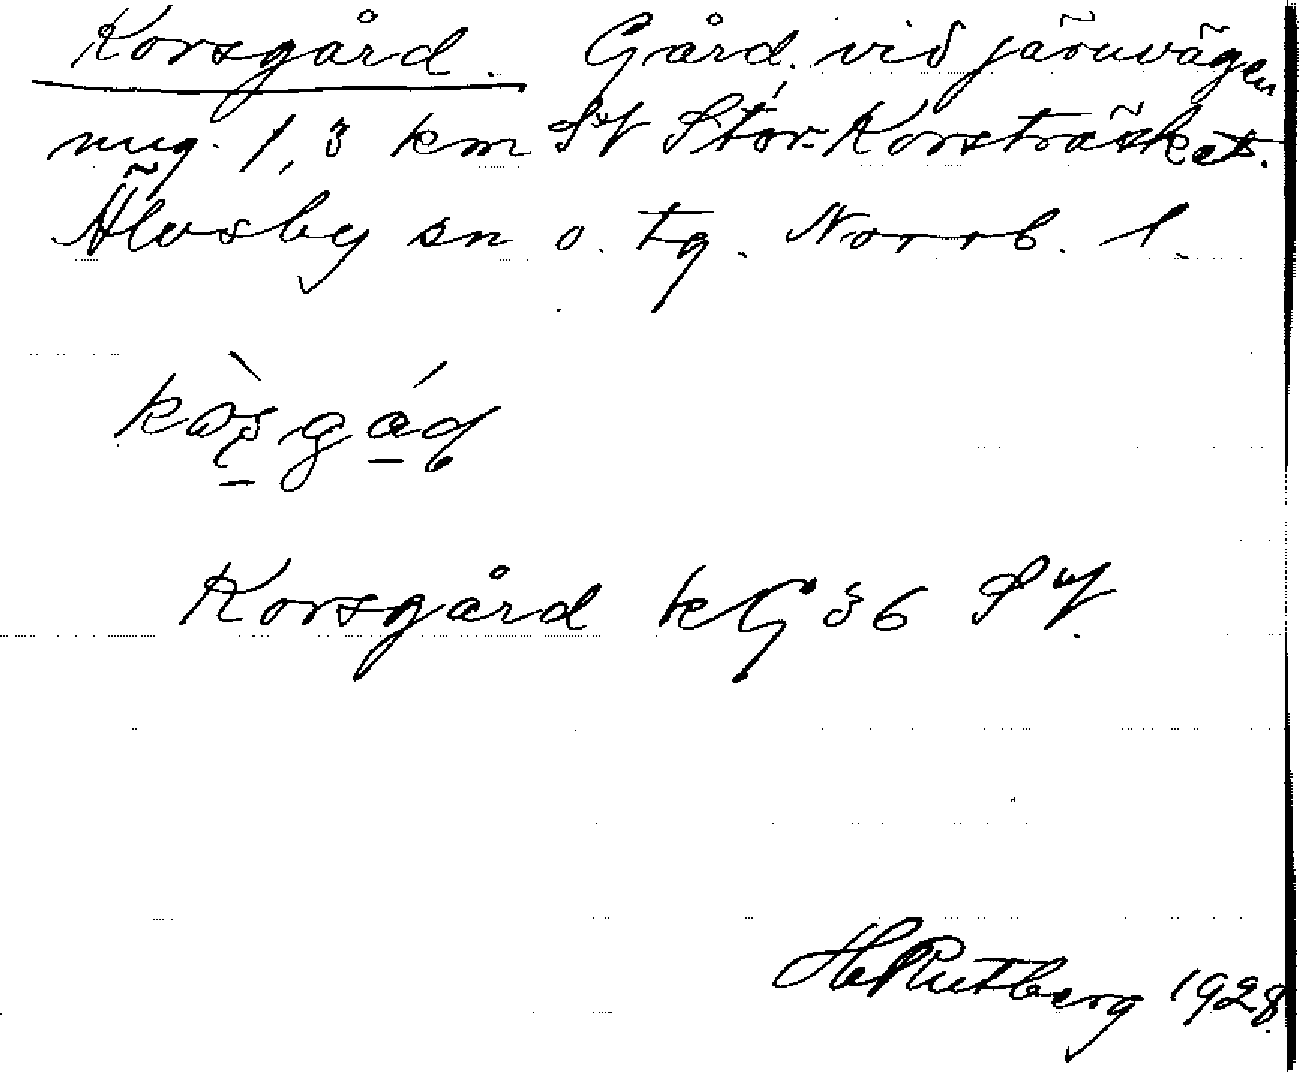 Korsgård. Gård vid järnvägen
ung. 1,3 km SV Stor-Korsträsket.
Älvsby sn o. tg. Norrb. l.
Korsgård kG 36 SV.
H Rutberg 1928